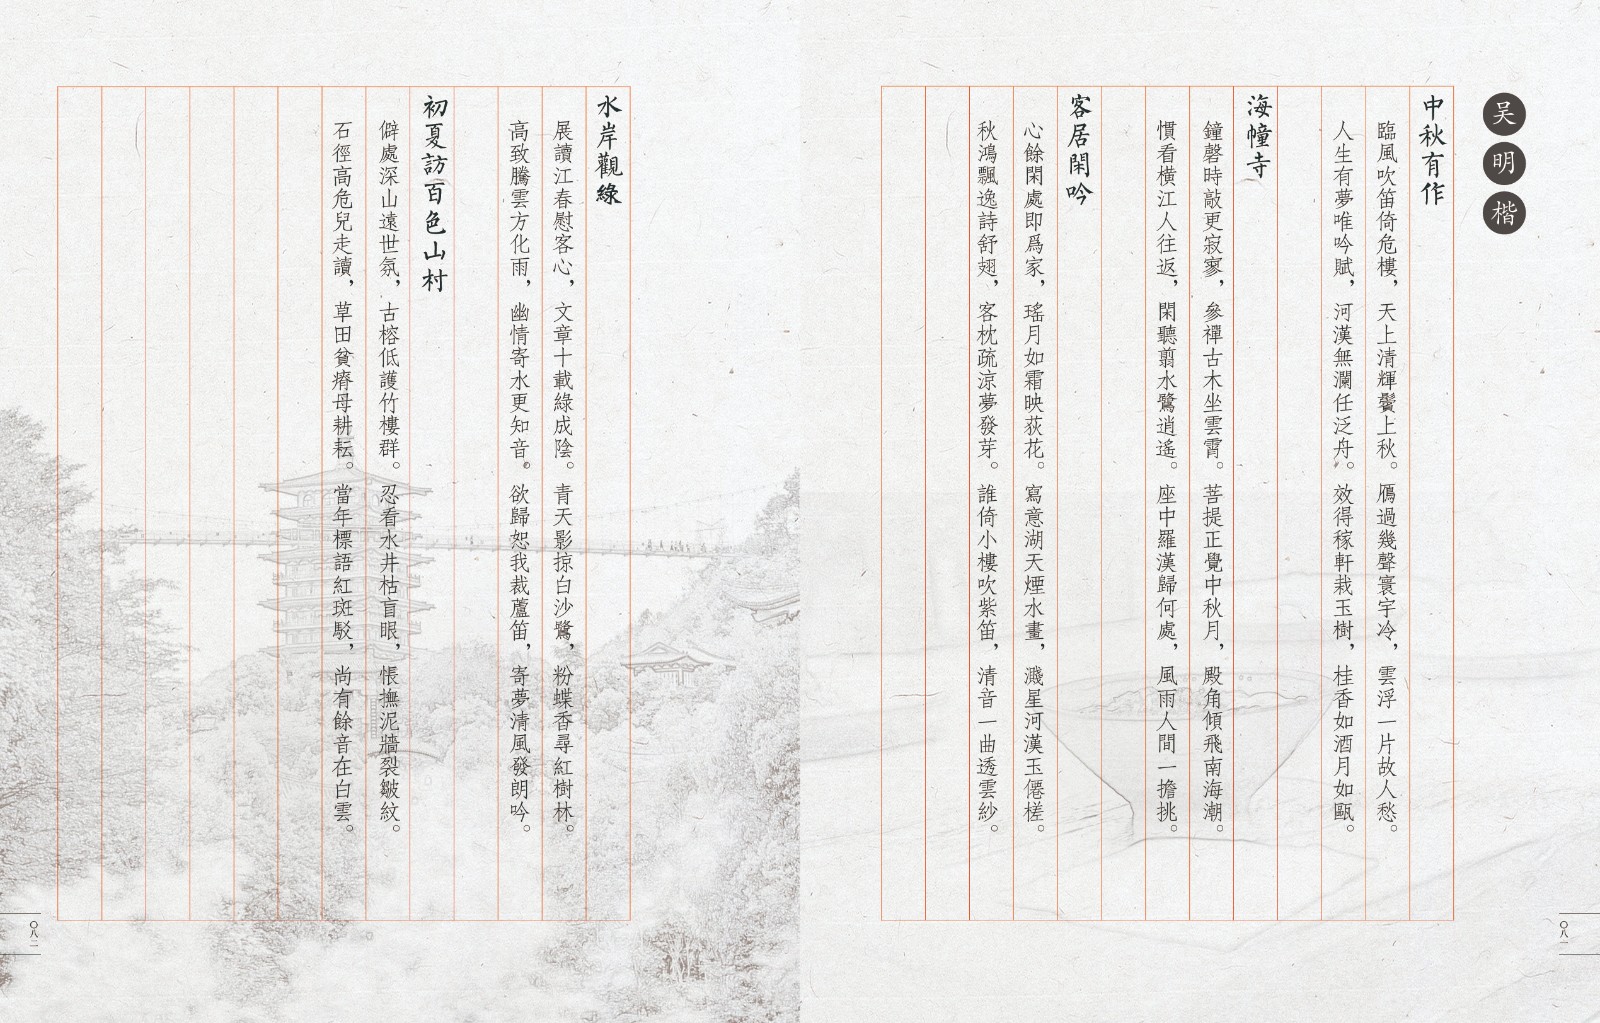 吴明楷
中秋有作
臨風吹笛倚危樓，天上清輝鬢上秋。鴈過幾聲寰宇冷，雲浮一片故人愁。
人生有夢唯吟賦，河漢無瀾任泛舟。效得稼軒栽玉樹，桂香如酒月如甌。
海幢寺
鐘磬時敲更寂寥，參禪古木坐雲霄。菩提正覺中秋月，殿角傾飛南海潮。
慣看橫江人往返，閑聽翦水鷺逍遙。座中羅漢歸何處，風雨人間一擔挑。
客居閑吟
心餘閑處即爲家，瑤月如霜映荻花。寫意湖天煙水畫，濺星河漢玉僊槎。
秋鴻飄逸詩舒翅，客枕疏涼夢發芽。誰倚小樓吹紫笛，清音一曲透雲紗。
〇八一
水岸觀綠
展讀江春慰客心，文章十載綠成陰。青天影掠白沙鷺，粉蝶香尋紅樹林。
高致騰雲方化雨，幽情寄水更知音。欲歸恕我裁蘆笛，寄夢清風發朗吟。
初夏訪百色山村
僻處深山遠世氛，古榕低護竹樓群。忍看水井枯盲眼，悵撫泥牆裂皺紋。
石徑高危兒走讀，草田貧瘠母耕耘。當年標語紅斑駁，尚有餘音在白雲。
〇八二